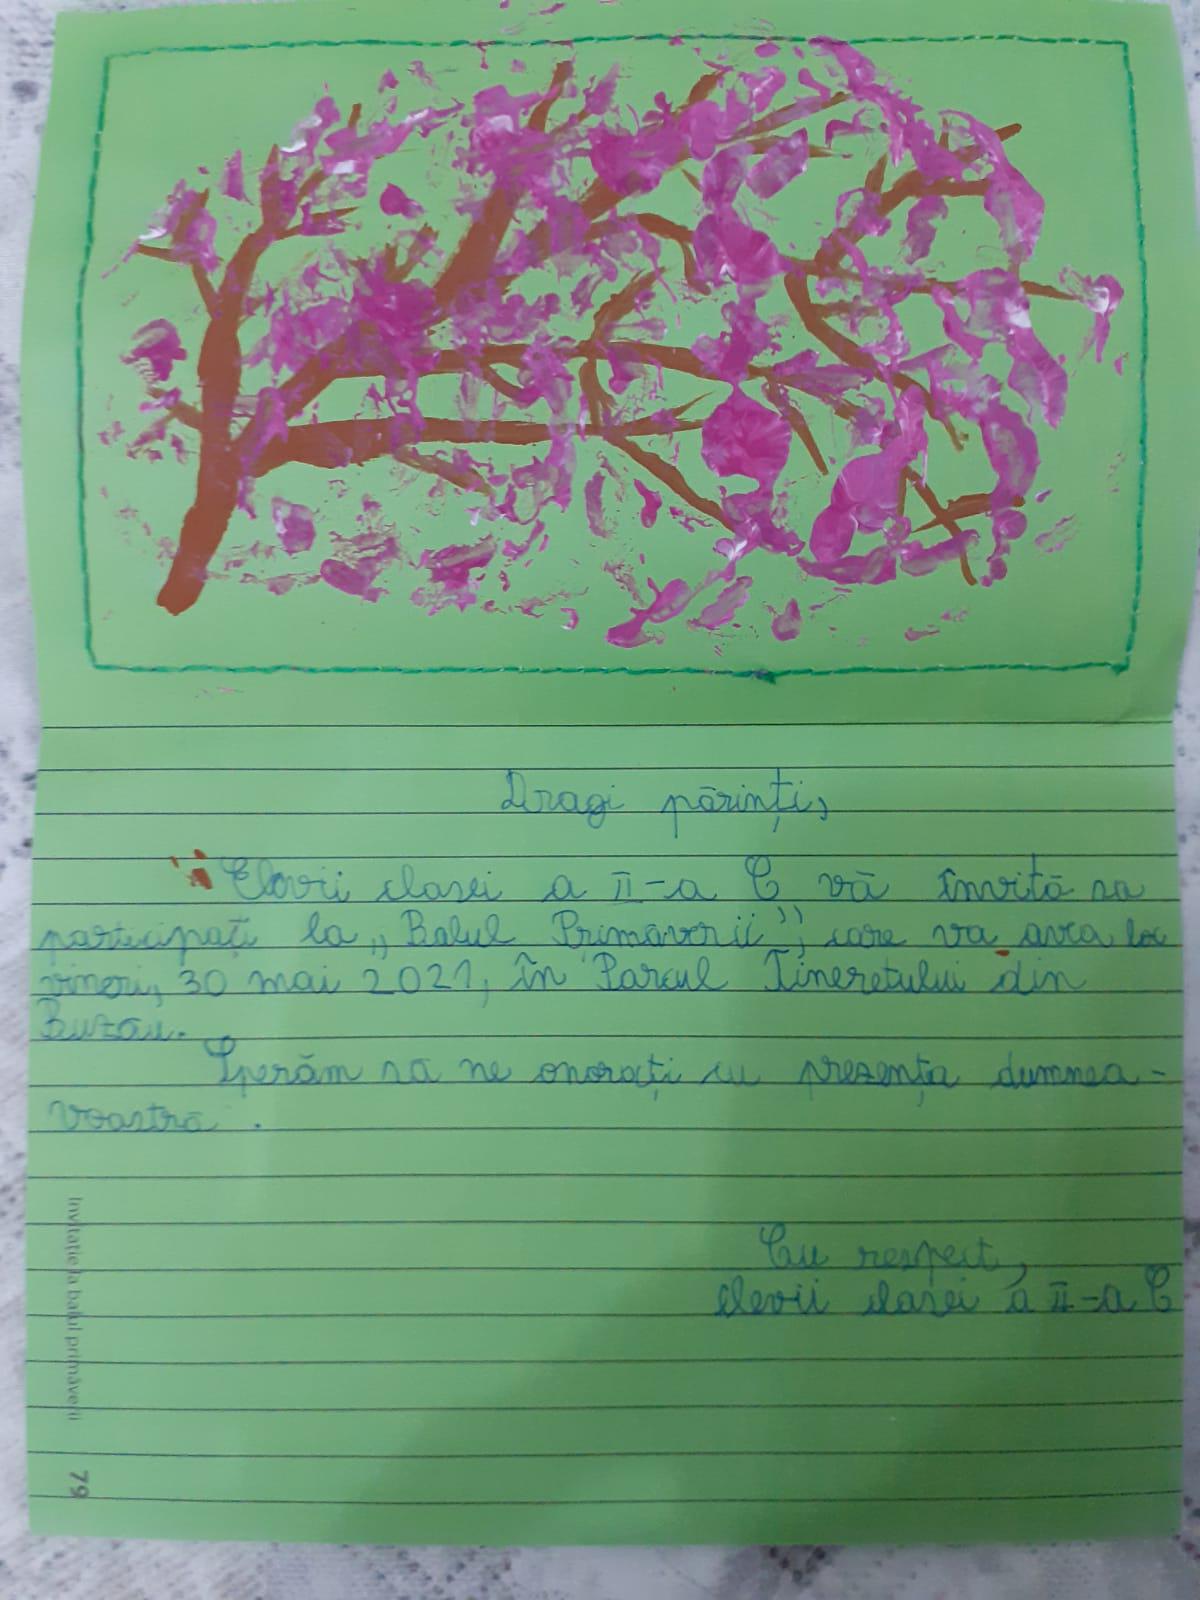 Dragi părinți,
Elevii clasei a II-a C vă invită sa
participați la „Balul Primăverii”, care va avea loc
vineri, 30 mai 2021, în Parcul Tineretului din
Buzău.
Sperăm să ne onorați cu prezența dumnea-
voastră.
Cu respect,
elevii clasei a II-a C
Invitație la balul primăverii
79